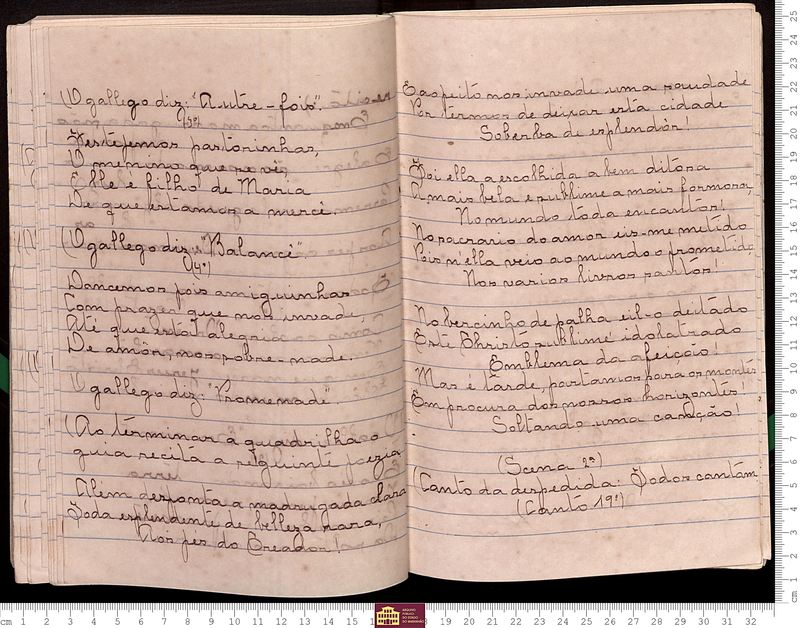 (O gallego diz: "Autre-fois".
(3º)
Festejemos pastorinhas,
O menino que se vê,
Elle é filho de Maria
De que estamos a mercê.
(O gallego diz: "Balancê".
(4º)
Dancemos pois amiguinhas
Com prazer que nos invade,
Até que esta alegria
De amôr, nos
O gallego diz: "Promenade"
(Ao terminar a quadrilha o
guia recita a seguinte poezia
Além desponta a madrugada clára
Toda esplendente de belleza rara,
Aos pés do Creador!
E aspeito nos invade uma saudade
Por termos de deixar esta cidade
Soberba de esplendôr!
Foi ella a escolhida a bem ditosa
A mais bela e sublime a mais formosa,
No mundo toda encantos!
No sacrario do amor eis-me metido
Pois n'ella veio ao mundo o prometido
Nos varios livros santos!
No bercinho de palha eil-o deitado
Este Christo sublime idolatrado
Emblema da afeição!
Mas é tarde, partamos para os montes
Em procura dos nossos horizontes!
Soltando uma canção!
(Scena 2ª)
(Canto da despedida: Todos cantam
(Canto 19º)
cm 1 2 3 4 5 6 7 8 9 10 11 12 13 14 15
ARQUIVO PÚBLICO DO ESTADO DO MARANHÃO
18 19 20 21 22 23 24 25 26 27 28 29 30 31 32
cm 1 2 3 4 5 6 7 8 9 10 11 12 13 14 15 16 17 18 19 20 21 22 23 24 25